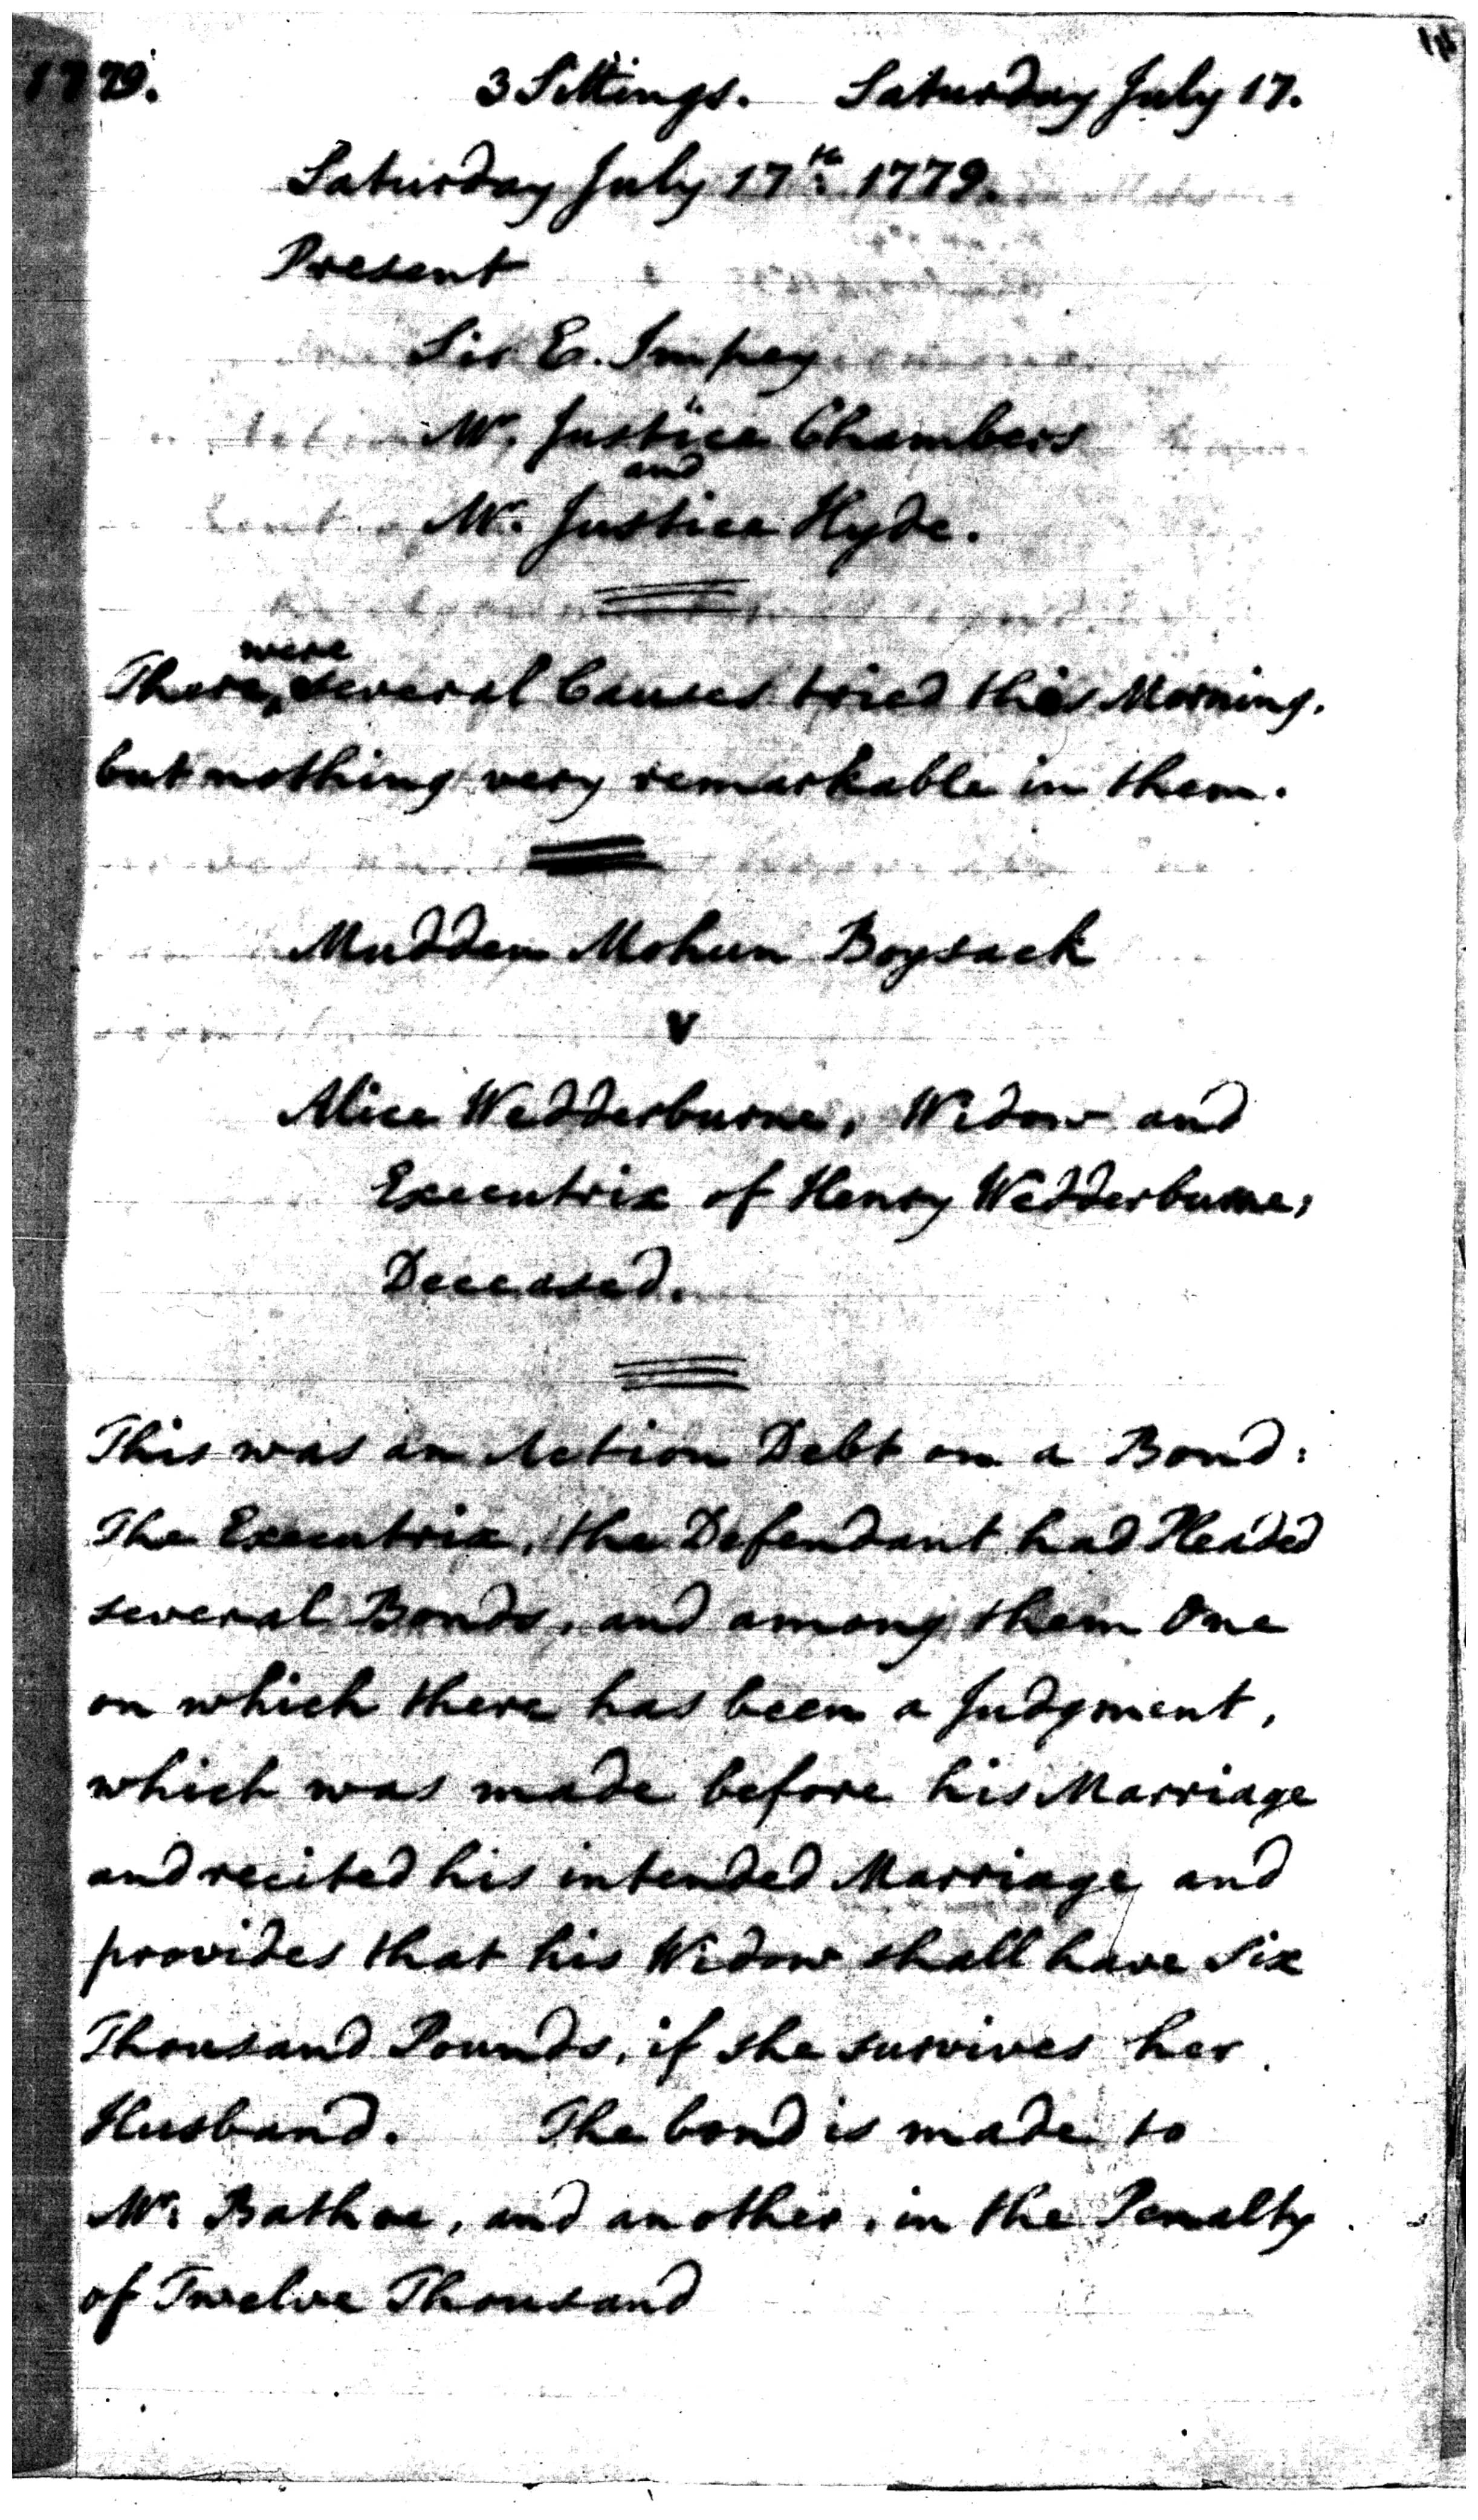 1779. 3 Sittings. Saturday July 17.
Saturday July 17th. 1779.
Present
Sir E. Impey
Mr. Justice Chambers
and
Mr. Justice Hyde.
were
There several Causes tried this Morning,
but nothing very remarkable in them.
Mudden Mohun Boysack
v
Alice Wedderburne, Widow and
Executrix of Henry Wedderburne,
Deceased.
This was an Action Debt on a Bond:
The Executrix, the Defendant had Pleaded
several Bonds, and among them One
on which there has been a Judgment,
which was made before his Marriage
and recited his intended Marriage and
provides that his Widow shall have Six
Thousand Pounds, if she survives her
Husband. The bond is made to
Mr. Bathoe, and another, in the Penalty
of Twelve Thousand